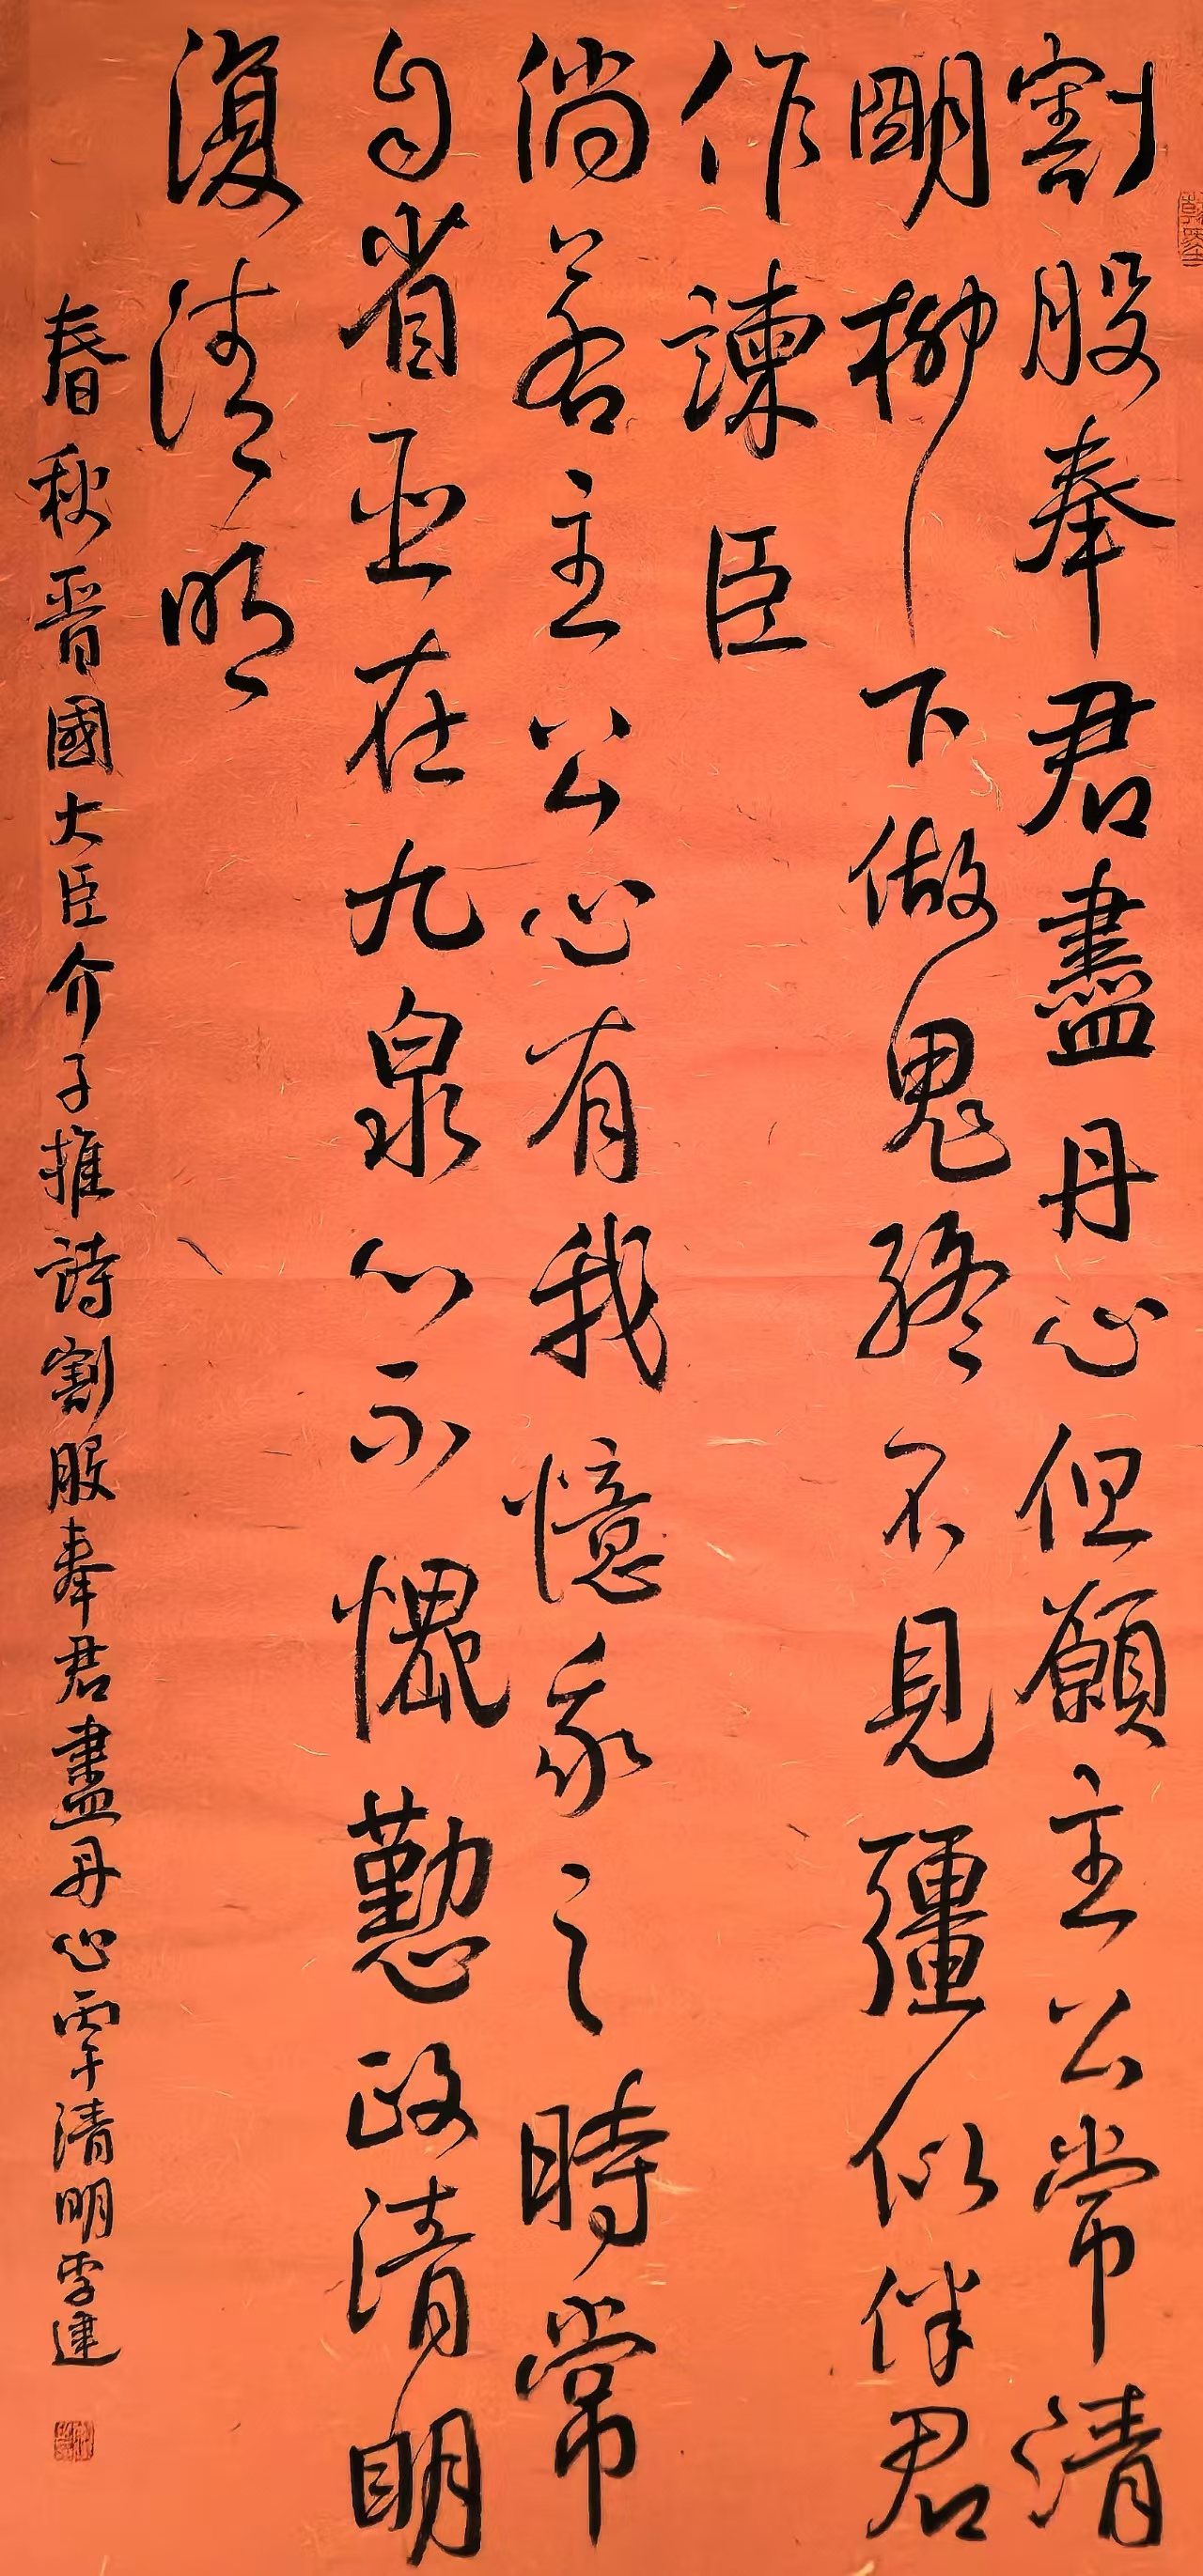 割股奉君盡丹心但願主公常清
明柳下做鬼終不見彊似伴君
作諫臣
倘若主公心有我憶我之時常
自省臣在九泉心不愧勤政清明
復清明
春秋晉國大臣介子推詩割股奉君盡丹心丙午清明李建